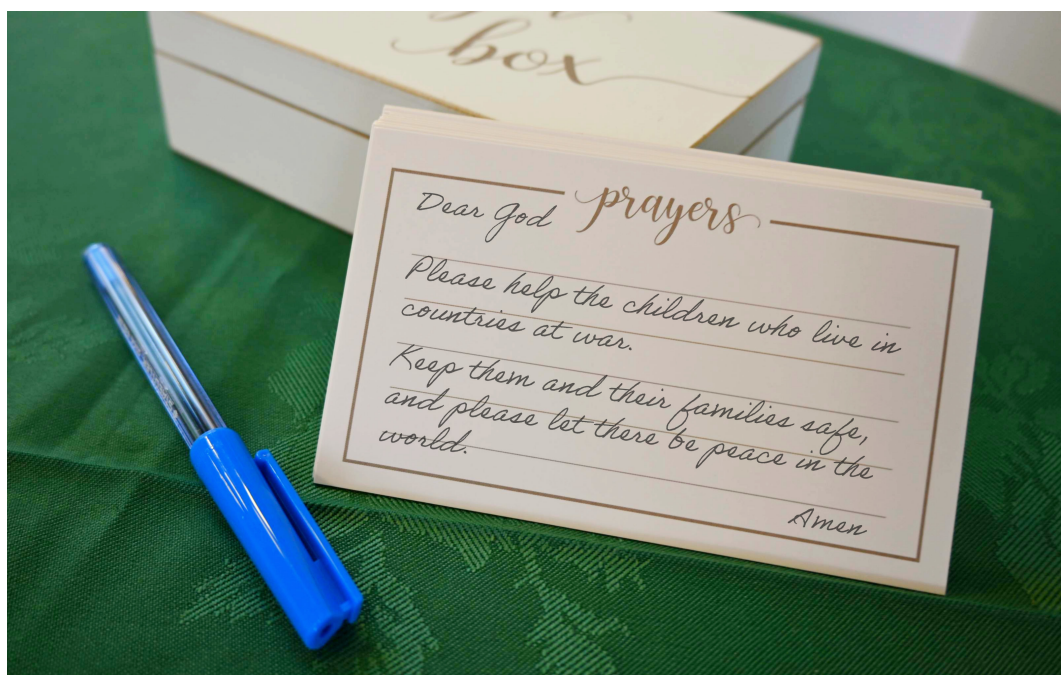 box
prayers
Dear God
Please help the children who live in
countries at war.
Keep them and their families safe,
and please let there be peace in the
world.
Amen